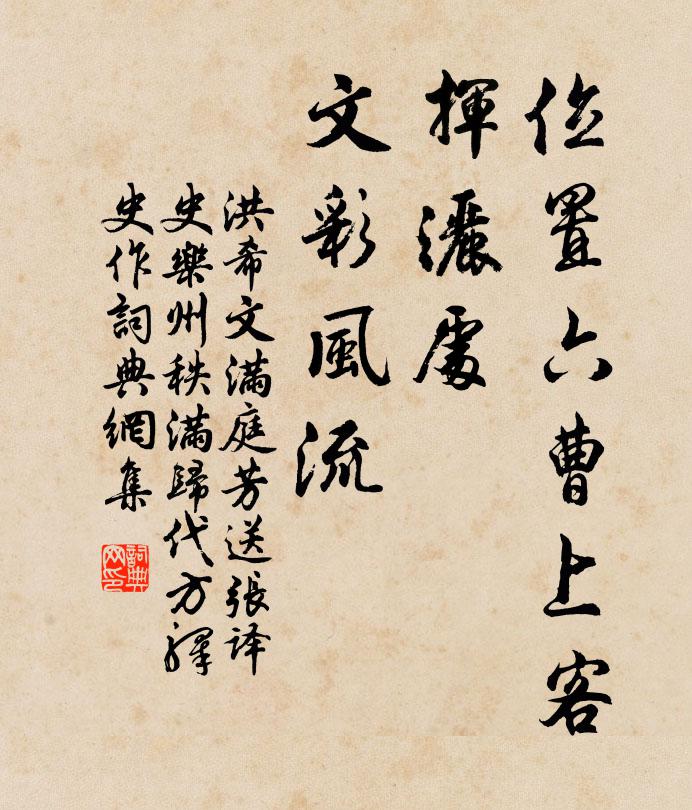 位置六曹上客
揮灑處
文彩風流
洪希文滿庭芳送張译
史樂州秩滿歸代方驛
史作詞典網集
詞典网印